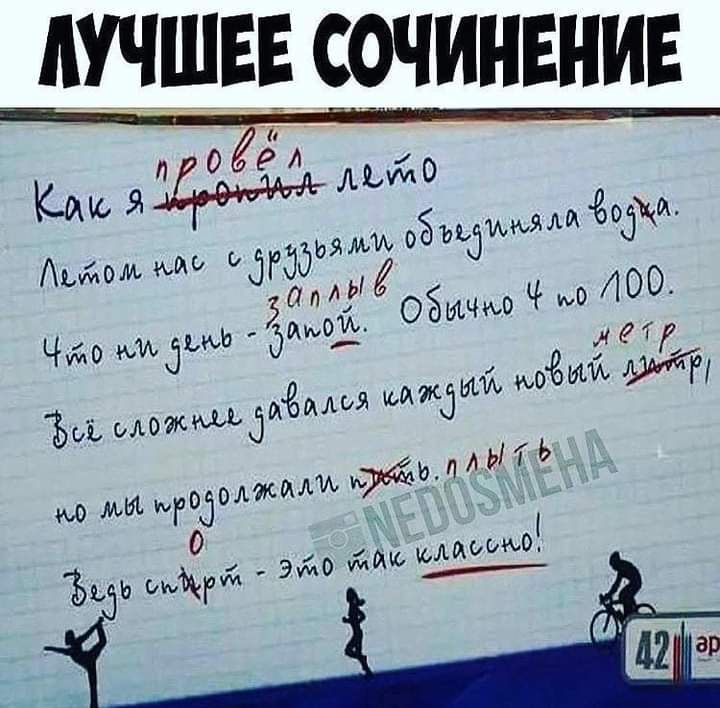 ЛУЧШЕЕ СОЧИНЕНИЕ
провёл
Как я пропил лето
Летом нас с друзьями объединяла водка.
заплыв
Что ни день - Запой. Обычно 4 по 100.
метр
Всё сложнее давался каждый новый литр,
но мы продолжали пить. плыть
о
Ведь спирт - это так классно!
NEDOSMEHA
42 ар